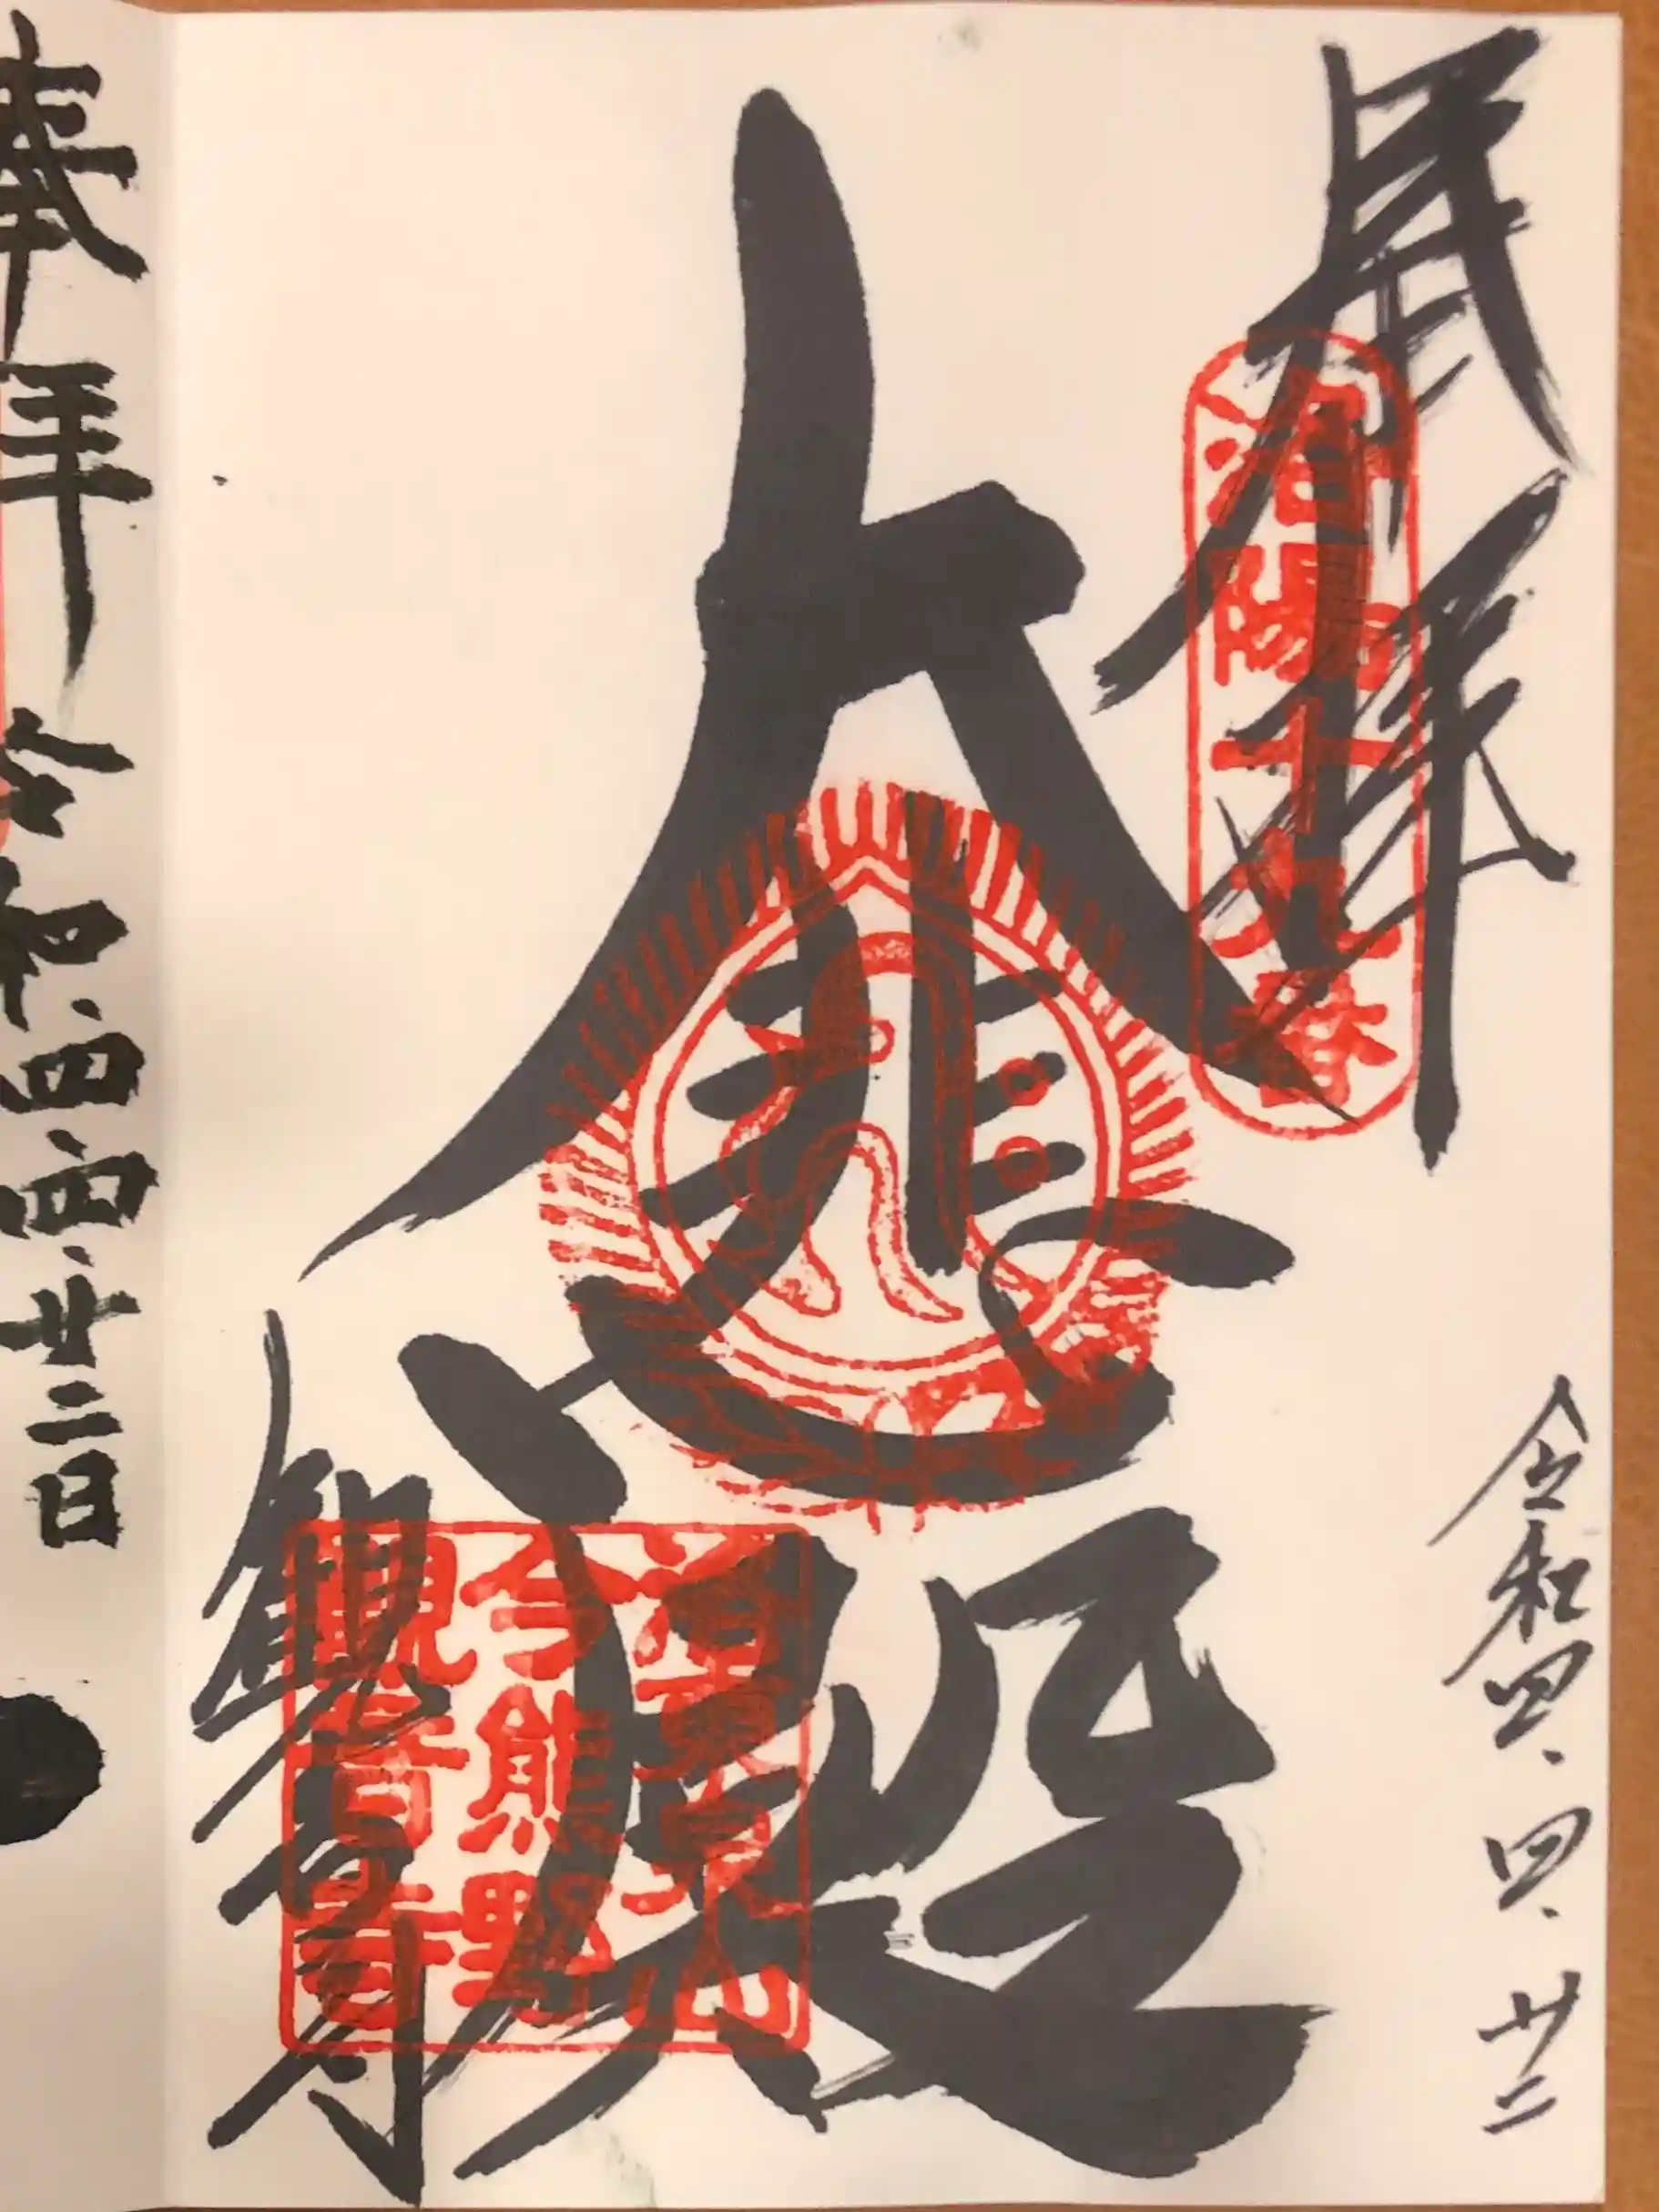 奉拝
洛陽十九番
令和四、四、廿二
大悲殿
観音寺
東山
今熊野
観音寺
奉拝 令和四、四、廿二日